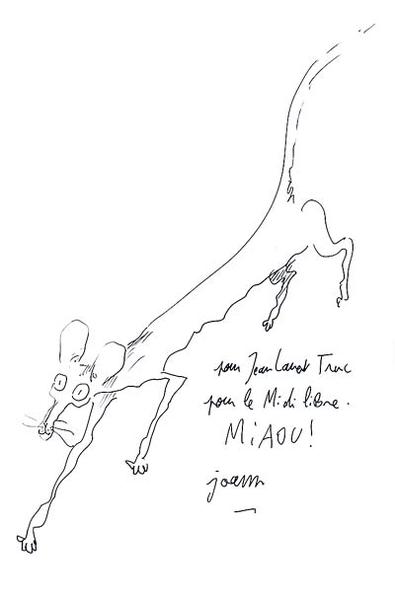 pour Jean Laurent Truc
pour le Midi libre.
MiAOU!
joann